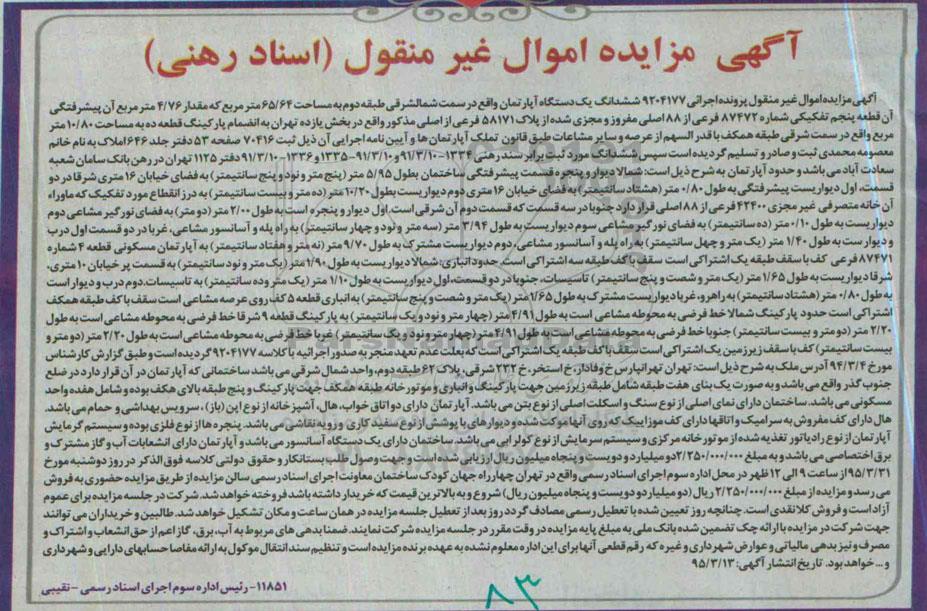 آگهی مزایده اموال غیر منقول (اسناد رهنی)
آگهی مزایده اموال غیر منقول پرونده اجرائی ۹۲۰۴۱۷۷ ششدانگ یک دستگاه آپارتمان واقع در سمت شمالشرقی طبقه دوم به مساحت ۶۵/۶۴ متر مربع که مقدار ۴/۷۶ متر مربع آن پیشرفتگی
آن قطعه پنجم تفکیکی شماره ۸۷۴۷۲ فرعی از ۸۸ اصلی مفروز و مجزی شده از پلاک ۵۸۱۷۱ فرعی از اصلی مذکور واقع در بخش یازده تهران به انضمام پارکینگ قطعه ده به مساحت ۱۰/۸۰ متر
مربع واقع در سمت شرقی طبقه همکف با قدر السهم از عرصه و سایر مشاعات طبق قانون تملک آپارتمان ها و آیین نامه اجرایی آن ذیل ثبت ۷۰۴۱۶ صفحه ۵۳ دفتر جلد ۶۴۶ املاک به نام خانم
معصومه محمدی ثبت و صادر و تسلیم گردیده است سپس ششدانگ مورد ثبت برابر سند رهنی ۱۳۳۴-۹۱/۳/۱۰ و ۱۳۳۵-۹۱/۳/۱۰ و ۱۳۳۶-۹۱/۳/۱۰ دفتر ۱۱۲۵ تهران در رهن بانک سامان شعبه
سعادت آباد می باشد و حدود آپارتمان به شرح ذیل است: شمالا دیوار و پنجره قسمت پیشرفتگی ساختمان بطول ۵/۹۵ متر (پنج متر و نود و پنج سانتیمتر) به فضای خیابان ۱۶ متری شرقا در دو
قسمت، اول دیواریست پیشرفتگی به طول ۰/۸۰ متر (هشتاد سانتیمتر) به فضای خیابان ۱۶ متری دوم دیواریست بطول ۱۰/۲۰ متر (ده متر و بیست سانتیمتر) به درز انقطاع مورد تفکیک که ماوراء
آن خانه متصرفی غیر مجزی ۴۲۴۰۰ فرعی از ۸۸ اصلی قرار دارد جنوبا در سه قسمت که قسمت دوم آن شرقی است. اول دیوار و پنجره است به طول ۲/۰۰ متر (دو متر) به فضای نورگیر مشاعی دوم
دیواریست به طول ۰/۱۰ متر (ده سانتیمتر) به فضای نورگیر مشاعی سوم دیواریست به طول ۳/۹۴ متر (سه متر و نود و چهار سانتیمتر) به راه پله و آسانسور مشاعی، غربا در دو قسمت اول درب
و دیوار ست به طول ۱/۴۰ متر (یک متر و چهل سانتیمتر) به راه پله و آسانسور مشاعی، دوم دیواریست مشترک به طول ۹/۷۰ متر (نه متر و هفتاد سانتیمتر) به آپارتمان مسکونی قطعه ۴ شماره
۸۷۴۷۱ فرعی کف با سقف طبقه یک اشتراکی است سقف با کف طبقه سه اشتراکی است. حدود انباری: شمالا دیواریست به طول ۱/۹۰ متر (یک متر و نود سانتیمتر) به قسمت پر خیابان ۱۰ متری،
شرقا دیواریست به طول ۱/۶۵ متر (یک متر و شصت و پنج سانتیمتر) تاسیسات، جنوبا در دو قسمت، اول دیواریست به طول ۱/۱۰ متر (یک متر و ده سانتیمتر) به تاسیسات، دوم درب و دیوار است
به طول ۰/۸۰ متر (هشتاد سانتیمتر) به راهرو، غربا دیواریست مشترک به طول ۱/۶۵ متر (یک متر و شصت و پنج سانتیمتر) به انباری قطعه ۵ کف روی عرصه مشاعی است سقف با کف طبقه همکف
اشتراکی است حدود پارکینگ شمالا خط فرضی به محوطه مشاعی است به طول ۴/۹۱ متر (چهار متر و نود و یک سانتیمتر) به پارکینگ قطعه ۹ شرقا خط فرضی به محوطه مشاعی است به طول
۲/۲۰ متر (دو متر و بیست سانتیمتر) جنوبا خط فرضی به محوطه مشاعی است به طول ۴/۹۱ متر (چهار متر و نود و یک سانتیمتر) غربا خط فرضی به محوطه مشاعی است به طول ۲/۲۰ متر (دو متر و
بیست سانتیمتر) کف با سقف زیرزمین یک اشتراکی است سقف با کف طبقه یک اشتراکی است که بعلت عدم تعهد منجر به صدور اجرائیه با کلاسه ۹۲۰۴۱۷۷ گردیده است و طبق گزارش کارشناس
مورخ ۹۴/۳/۴ آدرس ملک به شرح ذیل است: تهران تهرانپارس خ وفادار، خ استخر، خ ۲۳۲ شرقی، پلاک ۶۲ طبقه دوم، واحد شمال شرقی می باشد ساختمانی که آپارتمان در آن قرار دارد در ضلع
جنوب گذر واقع می باشد و به صورت یک بنای هفت طبقه شامل طبقه زیرزمین جهت پارکینگ و انباری و موتورخانه طبقه همکف جهت پارکینگ و پنج طبقه بالای همکف بوده و شامل هفده واحد
مسکونی می باشد. ساختمان دارای نمای اصلی از نوع سنگ و اسکلت اصلی از نوع بتن می باشد. آپارتمان دارای دو اتاق خواب، هال، آشپزخانه از نوع اپن (باز)، سرویس بهداشتی و حمام می باشد.
هال دارای کف مفروش به سرامیک و اتاقها دارای کف موزاییک که روی آنها موکت شده و دیوارهای با پوشش از نوع سفید کاری و رویه نقاشی می باشد. پنجره ها از نوع فلزی بوده و سیستم گرمایش
آپارتمان از نوع رادیاتور تغذیه شده از موتورخانه مرکزی و سیستم سرمایش از نوع کولر آبی می باشد. ساختمان دارای یک دستگاه آسانسور می باشد و آپارتمان دارای انشعابات آب و گاز مشترک و
برق اختصاصی می باشد و به مبلغ ۲/۲۵۰/۰۰۰/۰۰۰ دو میلیارد و دویست و پنجاه میلیون ریال ارزیابی شده است و جهت وصول طلب بستانکار و حقوق دولتی کلاسه فوق الذکر در روز دوشنبه مورخ
۹۵/۳/۳۱ از ساعت ۹ الی ۱۲ ظهر در محل اداره سوم اجرای اسناد رسمی واقع در تهران چهارراه جهان کودک ساختمان معاونت اجرای اسناد رسمی سالن مزایده از طریق مزایده حضوری به فروش
می رسد و مزایده از مبلغ ۲/۲۵۰/۰۰۰/۰۰۰ ریال (دو میلیارد دویست و پنجاه میلیون ریال) شروع و به بالاترین قیمت که خریدار داشته باشد فروخته خواهد شد. شرکت در جلسه مزایده برای عموم
آزاد است و فروش کلا نقدی است. چنانچه روز تعیین شده با تعطیل رسمی مصادف گردد روز بعد از تعطیل جلسه مزایده در همان ساعت و مکان تشکیل خواهد شد. طالبین و خریداران می توانند
جهت شرکت در مزایده با ارائه چک تضمین شده بانک ملی به مبلغ پایه مزایده در وقت مقرر در جلسه مزایده شرکت نمایند. ضمنا بدهی های مربوط به آب، برق، گاز اعم از حق انشعاب و اشتراک و
مصرف و نیز بدهی مالیاتی و عوارض شهرداری و غیره که رقم قطعی آنها برای این اداره معلوم نشده به عهده برنده مزایده است و تنظیم سند انتقال موکول به ارائه مفاصا حسابهای دارایی و شهرداری
و ... خواهد بود. تاریخ انتشار آگهی: ۹۵/۳/۱۳
۱۱۸۵۱- رئیس اداره سوم اجرای اسناد رسمی - نقیبی
۸۳